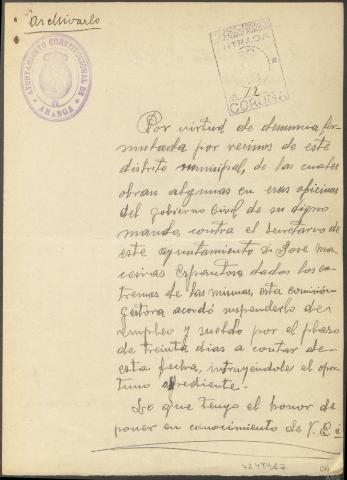 Archivarlo
AYUNTAMIENTO CONSTITUCIONAL DE
ARANGA
ENTRADA
CORUÑA
Por virtud de denuncia for-
mulada por vecinos de este
distrito municipal, de las cuales
obran algunas en esas oficinas
del gobierno Civil de su digno
mando, contra el Secretario de
este ayuntamiento D. José Ma-
ceiras Espantoso, dados los ex-
tremos de las mismas, esta comisión
gestora acordó suspenderlo de
empleo y sueldo por el plaso
de treinta dias a contar de
esta fecha, intruyéndole el opor-
tuno expediente.-
Lo que tengo el honor de
poner en conocimiento de V. E. á